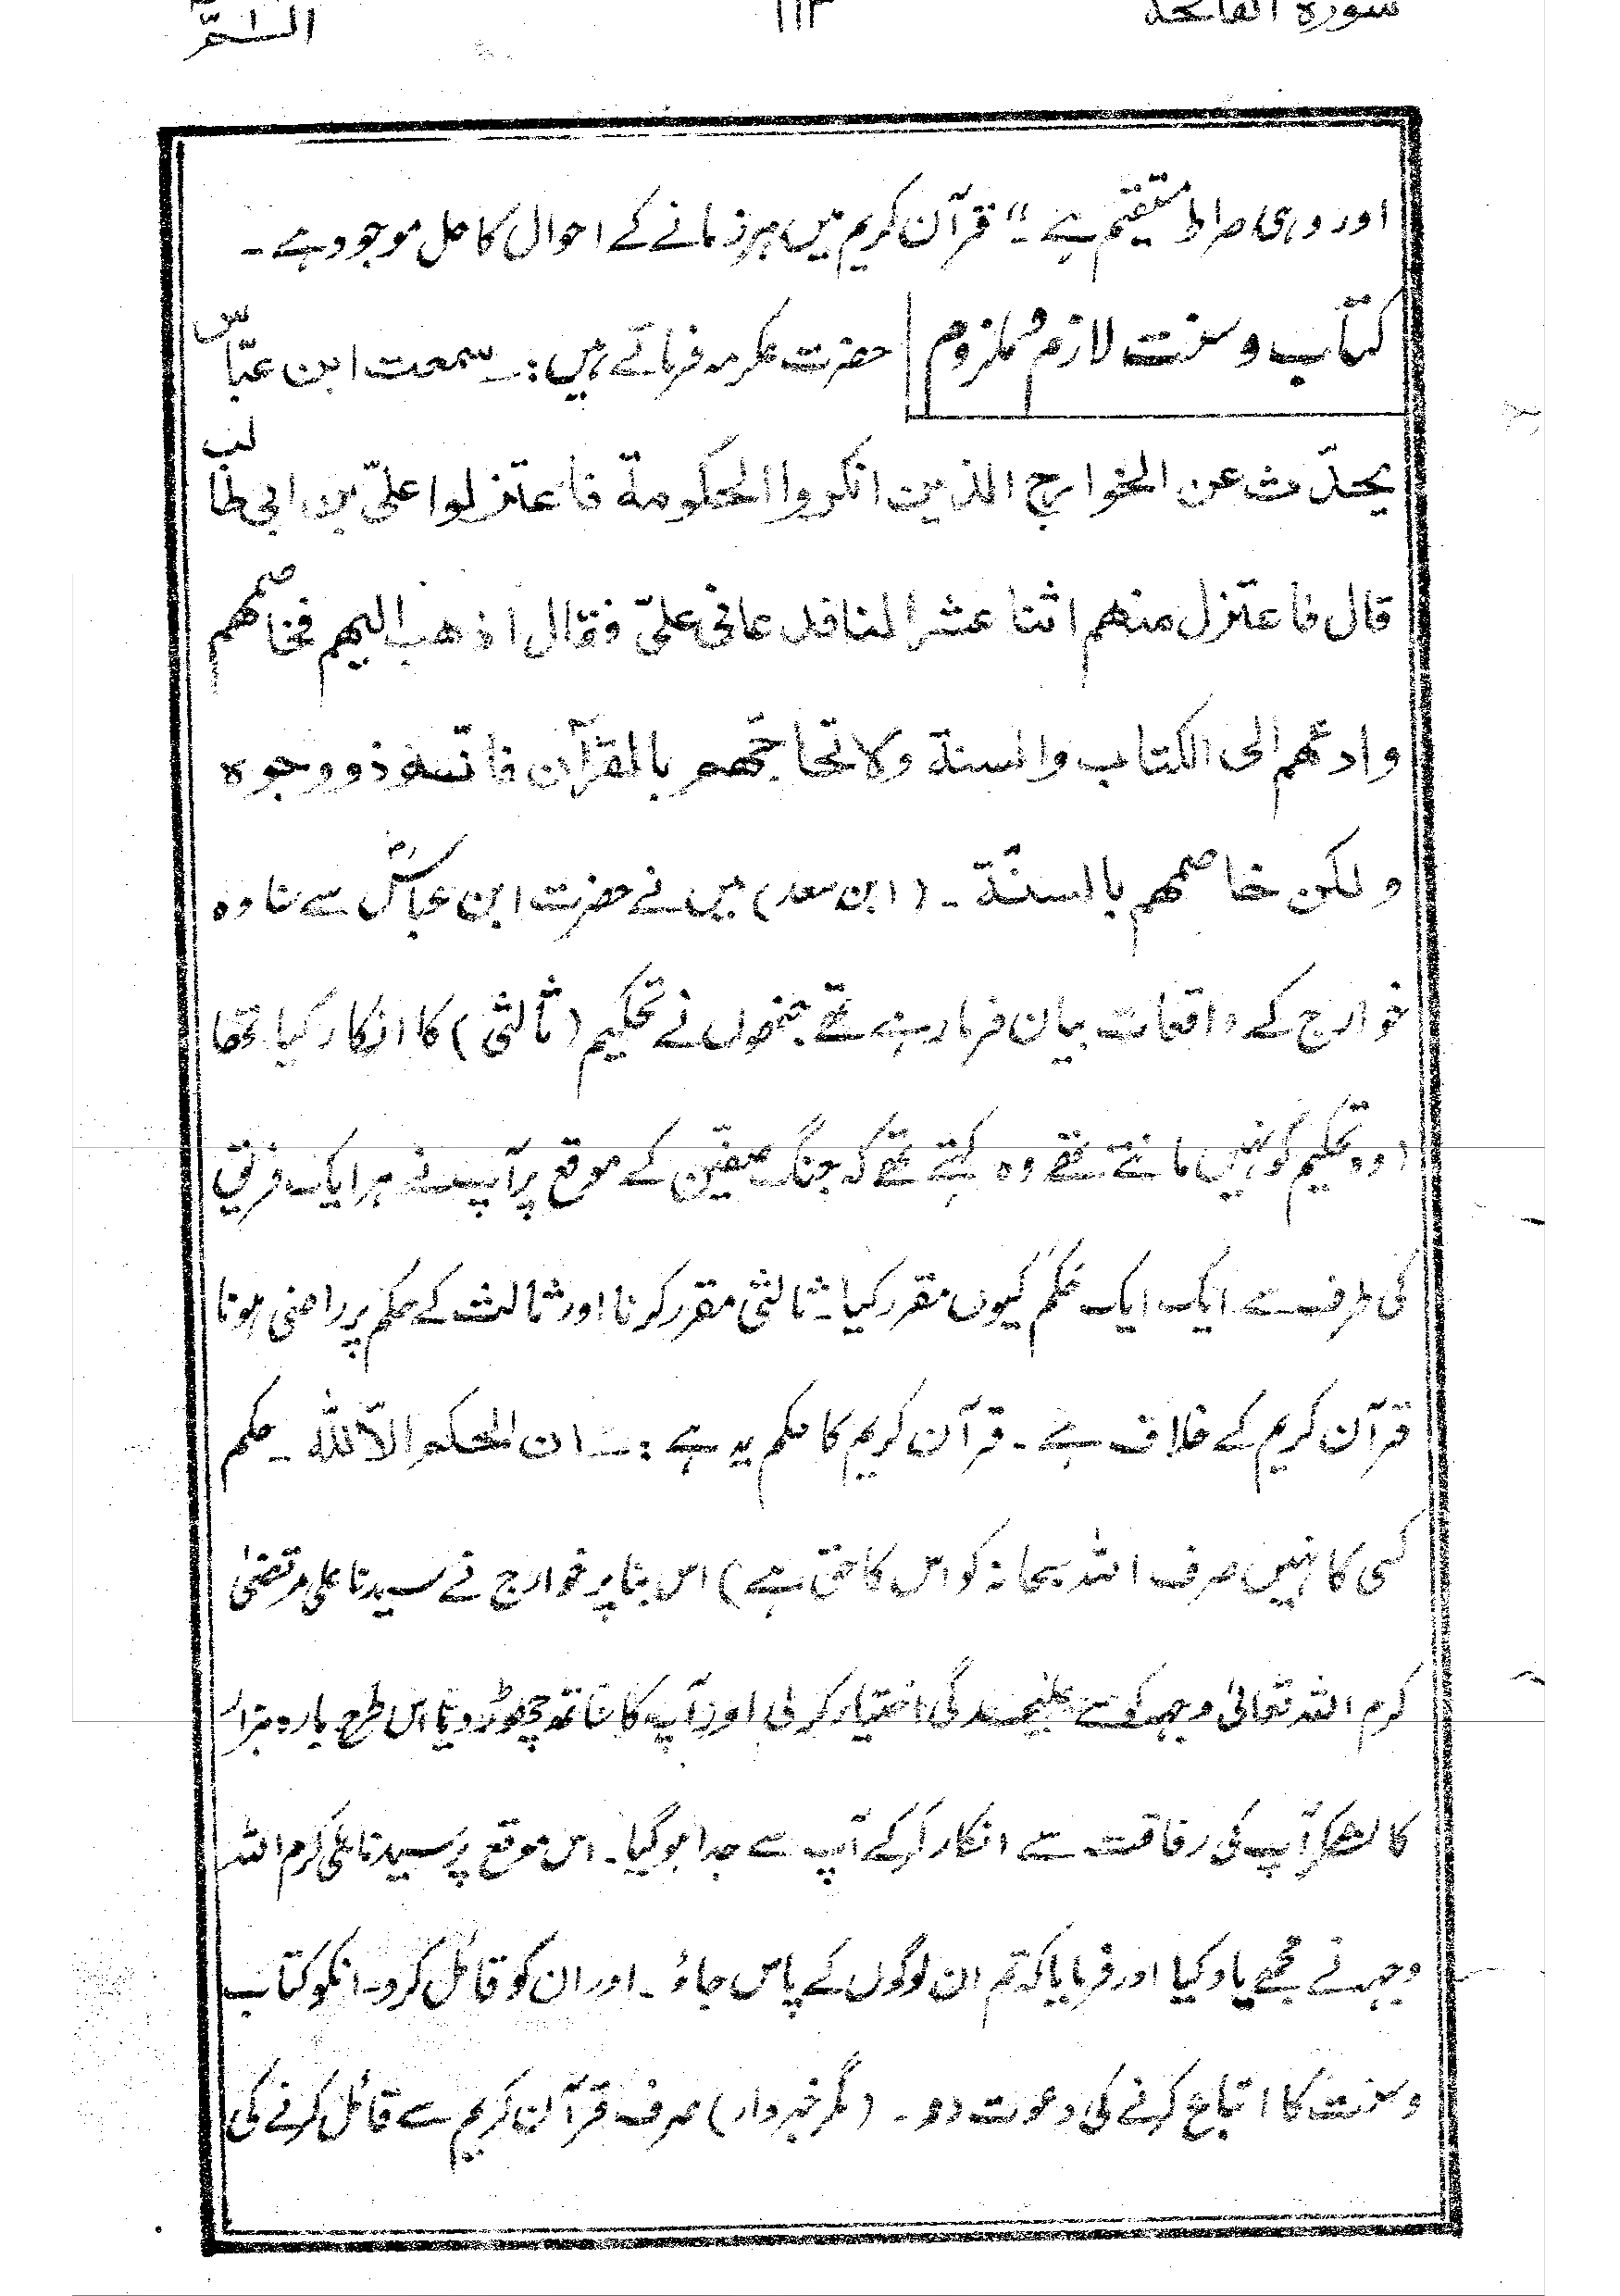 سورۃ الفاتحۃ ۱۱۳ الٓمّٓ
اور وہی صراط مستقیم ہے۔" قرآن کریم میں ہر زمانے کے احوال کا حل موجود ہے۔
کتاب و سنت لازم و ملزوم حضرت عکرمہ فرماتے ہیں:۔ سمعت ابن عبّاسؓ
یحدّث عن الخوارج الذین انکروا الحکومۃ فاعتزلوا علیّ بن ابی طالب
قال فاعتزل منھم اثنا عشر الفا فدعانی علیّ فقال اذھب الیھم فخاصمھم
وادعھم الی الکتاب والسنۃ ولا تحاجّھم بالقرآن فانّہ ذو وجوہ
ولکن خاصمھم بالسنّۃ۔ (ابن سعد) میں نے حضرت ابن عباسؓ سے سنا وہ
خوارج کے واقعات بیان فرما رہے تھے جنھوں نے تحکیم (ثالثی) کا انکار کیا تھا
(وہ تحکیم کو نہیں مانتے تھے وہ کہتے تھے کہ جنگ صفین کے موقع پر آپ نے ہر ایک فریق
کی طرف سے ایک ایک حکم کیوں مقرر کیا۔ ثالثی مقرر کرنا اور ثالث کے حکم پر راضی ہونا
قرآن کریم کے خلاف ہے۔ قرآن کریم کا حکم یہ ہے:۔ ان الحکم الّا للّٰہ۔ حکم
کسی کا نہیں صرف اللہ سبحانہ کو اس کا حق ہے) اس بنا پر خوارج نے سیدنا علی مرتضیٰ
کرم اللہ تعالیٰ وجہہ سے علیٰحدگی اختیار کر لی اور آپ کا ساتھ چھوڑ دیا اس طرح بارہ ہزار
کا لشکر آپ کی رفاقت سے انکار کرکے آپ سے جدا ہوگیا۔ اس موقع پر سیدنا علی کرم اللہ
وجہہ نے مجھے یاد کیا اور فرمایا کہ تم ان لوگوں کے پاس جاؤ۔ اور ان کو قائل کرو۔ انکو کتاب
و سنت کا اتباع کرنے کی دعوت دو۔ (مگر خبردار) صرف قرآن کریم سے قائل کرنے کی